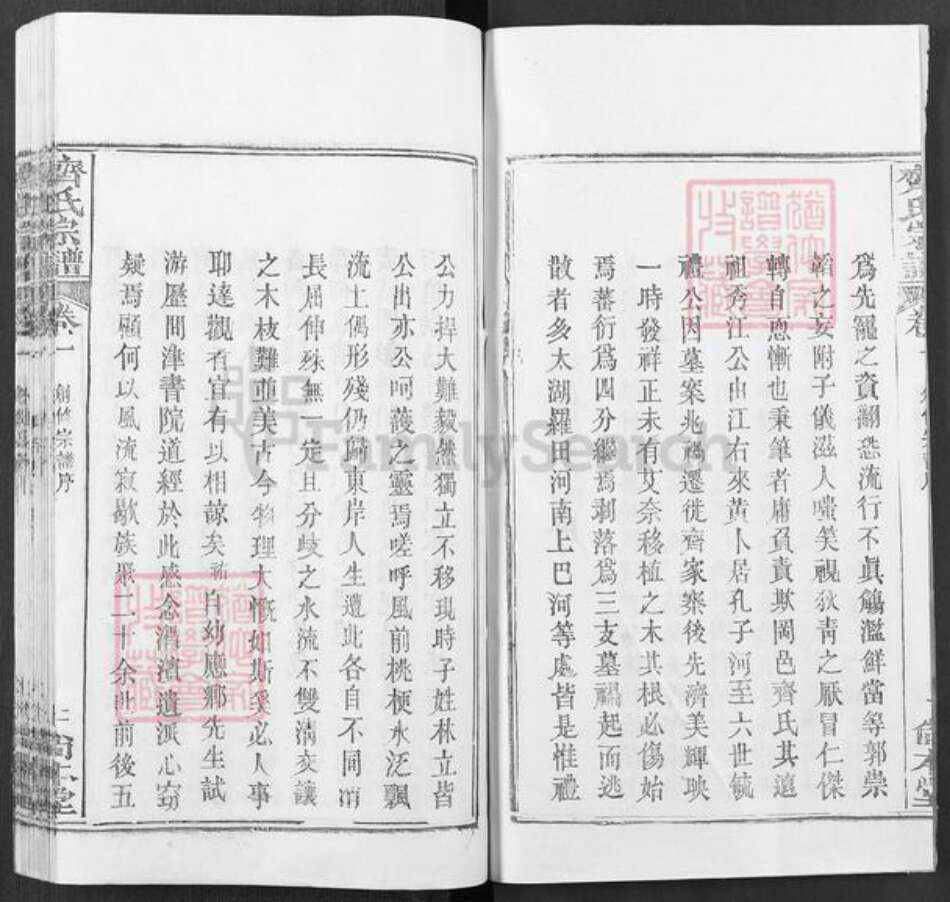 爲先寵之資翻恐流行不眞觴濫鮮當等郭崇
韜之妄附子儀滋人嗤笑視狄青之厭冒仁傑
轉自愿慚也秉筆者庸負責欺岡邑齊氏其遠
祖秀江公由江右來黃卜居孔子河至六世毓
禮公因墓案兆禍遷徙齊家寨後先濟美輝映
一時發祥正未有艾奈移植之木其根必傷始
焉蕃衍爲四分繼焉剥落爲三支墓禍起而逃
散者多太湖羅田河南上巴河等處皆是惟禮
齊氏宗譜
卷一
創修宗譜序
公力捍大難毅然獨立不移現時子姓林立皆
公出亦公呵護之靈焉嗟呼風前桃梗水泛飄
流土偶形殘仍歸東岸人生遭此各自不同消
長屈伸殊無一定且分歧之水流不雙淸交讓
之木枝難並美古今物理大慨如斯奚必人事
耶達觀者宜有以相諒矣 自幼應鄕先生試
游歷問津書院道經於此感念淸濱遺派心竊
疑焉顧何以風流寂歇族聚二十余世前後五
齊氏宗譜
卷一
創修宗譜序
FamilySearch